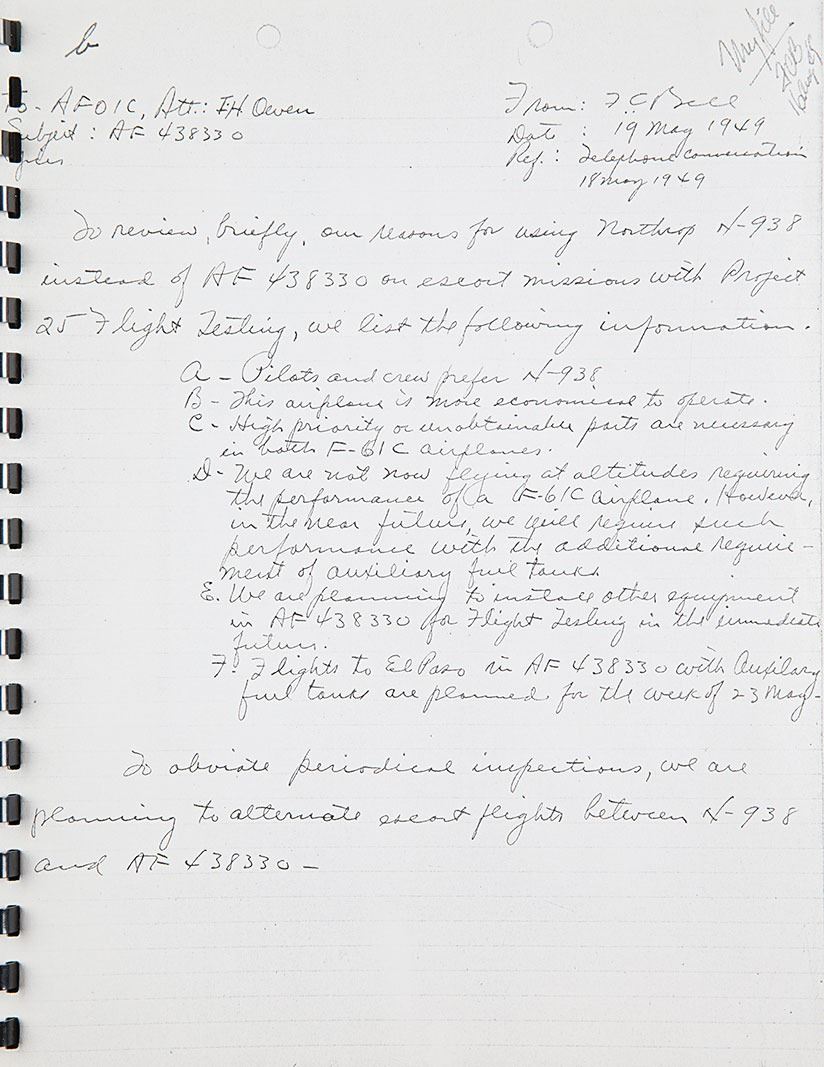 b
My file
FCB
To - AFOIC, Att.: FH Owen
From: F.C. Bell
Subject : AF 438330
Date : 19 May 1949
Ref. : Telephone Conversation
18 May 1949
To review, briefly, our reasons for using Northrop N-938
instead of AF 438330 on escort missions with Project
25 Flight Testing, we list the following information.
A - Pilots and crew prefer N-938
B - This airplane is more economical to operate.
C - High priority or unobtainable parts are necessary
in both F-61C airplanes.
D - We are not now flying at altitudes requiring
the performance of a F-61C airplane. However,
in the near future, we will require such
performance with the additional require-
ment of auxiliary fuel tanks.
E. We are planning to install other equipment
in AF 438330 for Flight Testing in the immediate
future.
F. Flights to El Paso in AF 438330 with Auxilary
fuel tanks are planned for the week of 23 May-
To obviate periodical inspections, we are
planning to alternate escort flights between N-938
and AF 438330 -